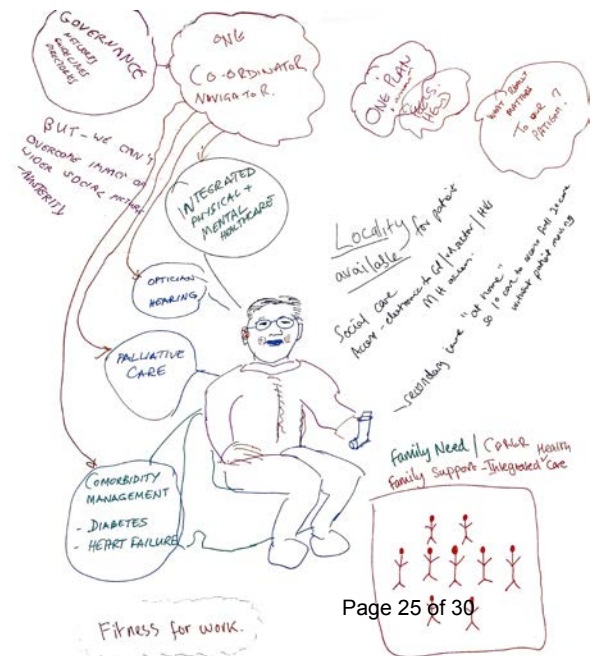 GOVERNANCE
NETWORKS
GUIDELINES
DIRECTORIES
ONE
CO-ORDINATOR
NAVIGATOR.
ONE PLAN
WHAT REALLY
MATTERS
TO OUR ?
PATIENT?
BUT - WE CAN'T
OVERCOME IMPACT OF
WIDER SOCIAL
- AUSTERITY
INTEGRATED
PHYSICAL +
MENTAL
HEALTHCARE
OPTICIAN
HEARING
PALLIATIVE
CARE
COMORBIDITY
MANAGEMENT
- DIABETES
- HEART FAILURE
Locality for patient
available
Social care
Access - electronic to GP
MH access.
- secondary care "at home"
so 1° care to access full 2° care
without patient moving
Family Need / CARER Health
Family Support - Integrated Care
Page 25 of 30
Fitness for work.